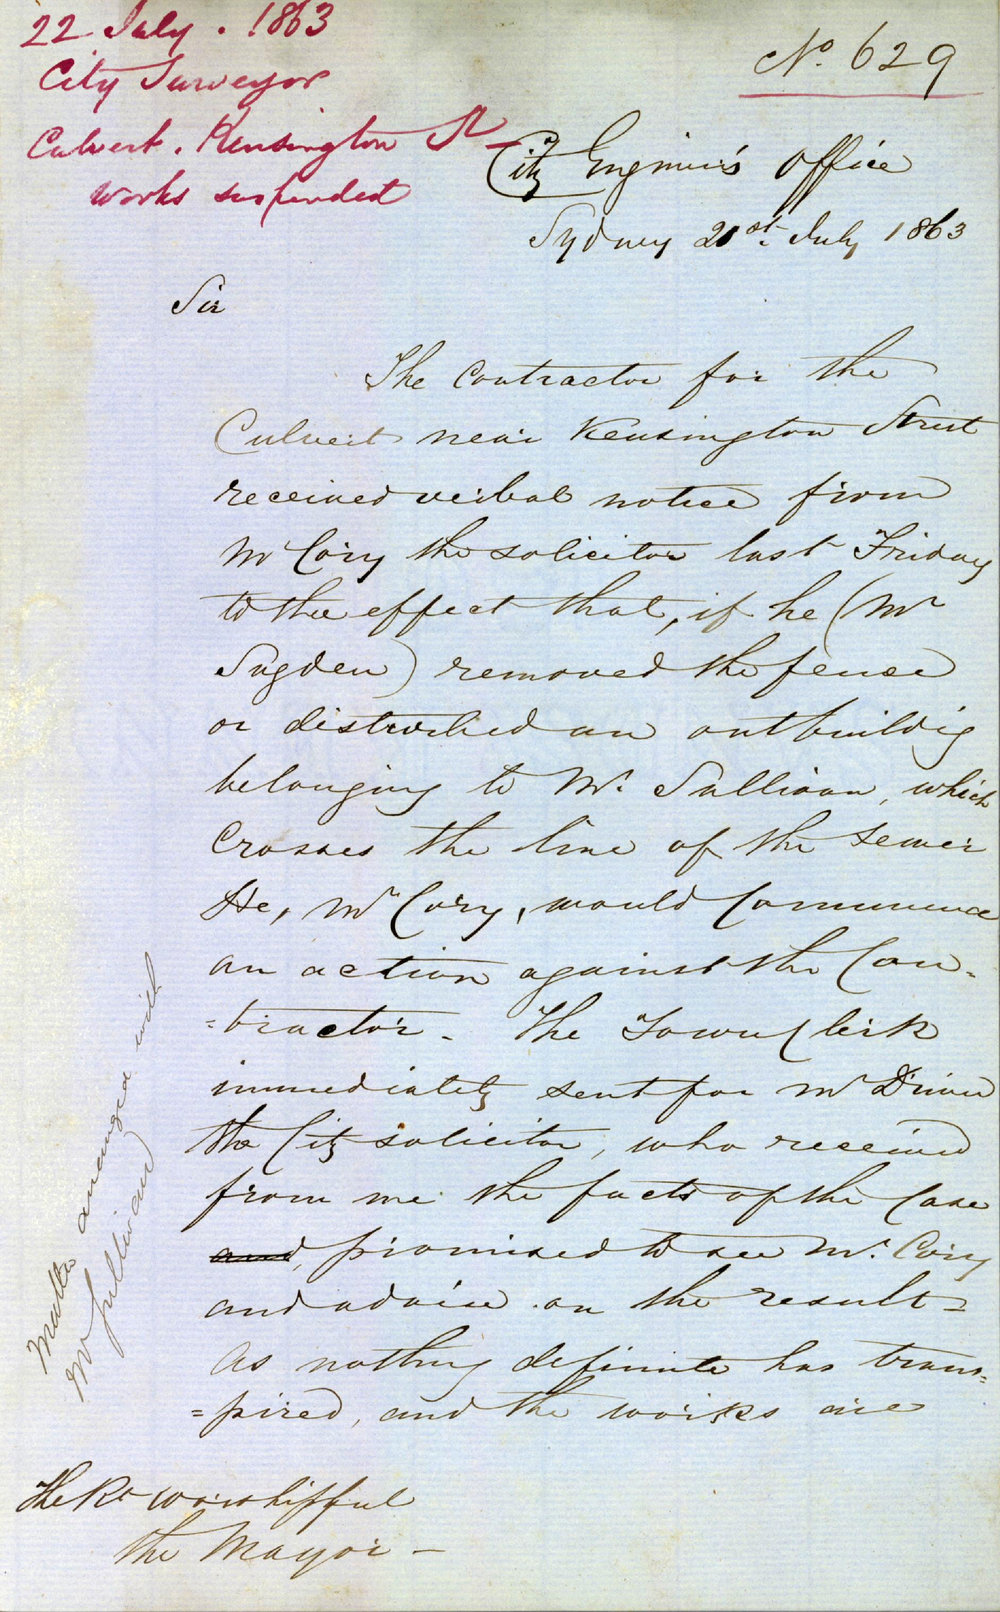 22 July . 1863
City Surveyor
Culvert . Kensington St
Works suspended
No. 629
City Engineer's Office
Sydney 21st July 1863
Sir
The Contractor for the
Culvert near Kensington Street
received verbal notice from
Mr Cory the solicitor last Friday
to the effect that, if he (Mr
Sugden) removed the fence
or disturbed an outbuilding
belonging to Mr. Sullivan, which
Crosses the line of the Sewer
He, Mr Cory, would Commence
an action against the Con-
=tractor - The Town Clerk
immediately sent for Mr
the City solicitor, who received
from me the facts of the Case
and, promised to see Mr. Cory
and advise on the result =
As nothing definite has trans=
=pired, and the works are
The Rt worshipful
the Mayor -
Matter arranged with
Mr Sullivan